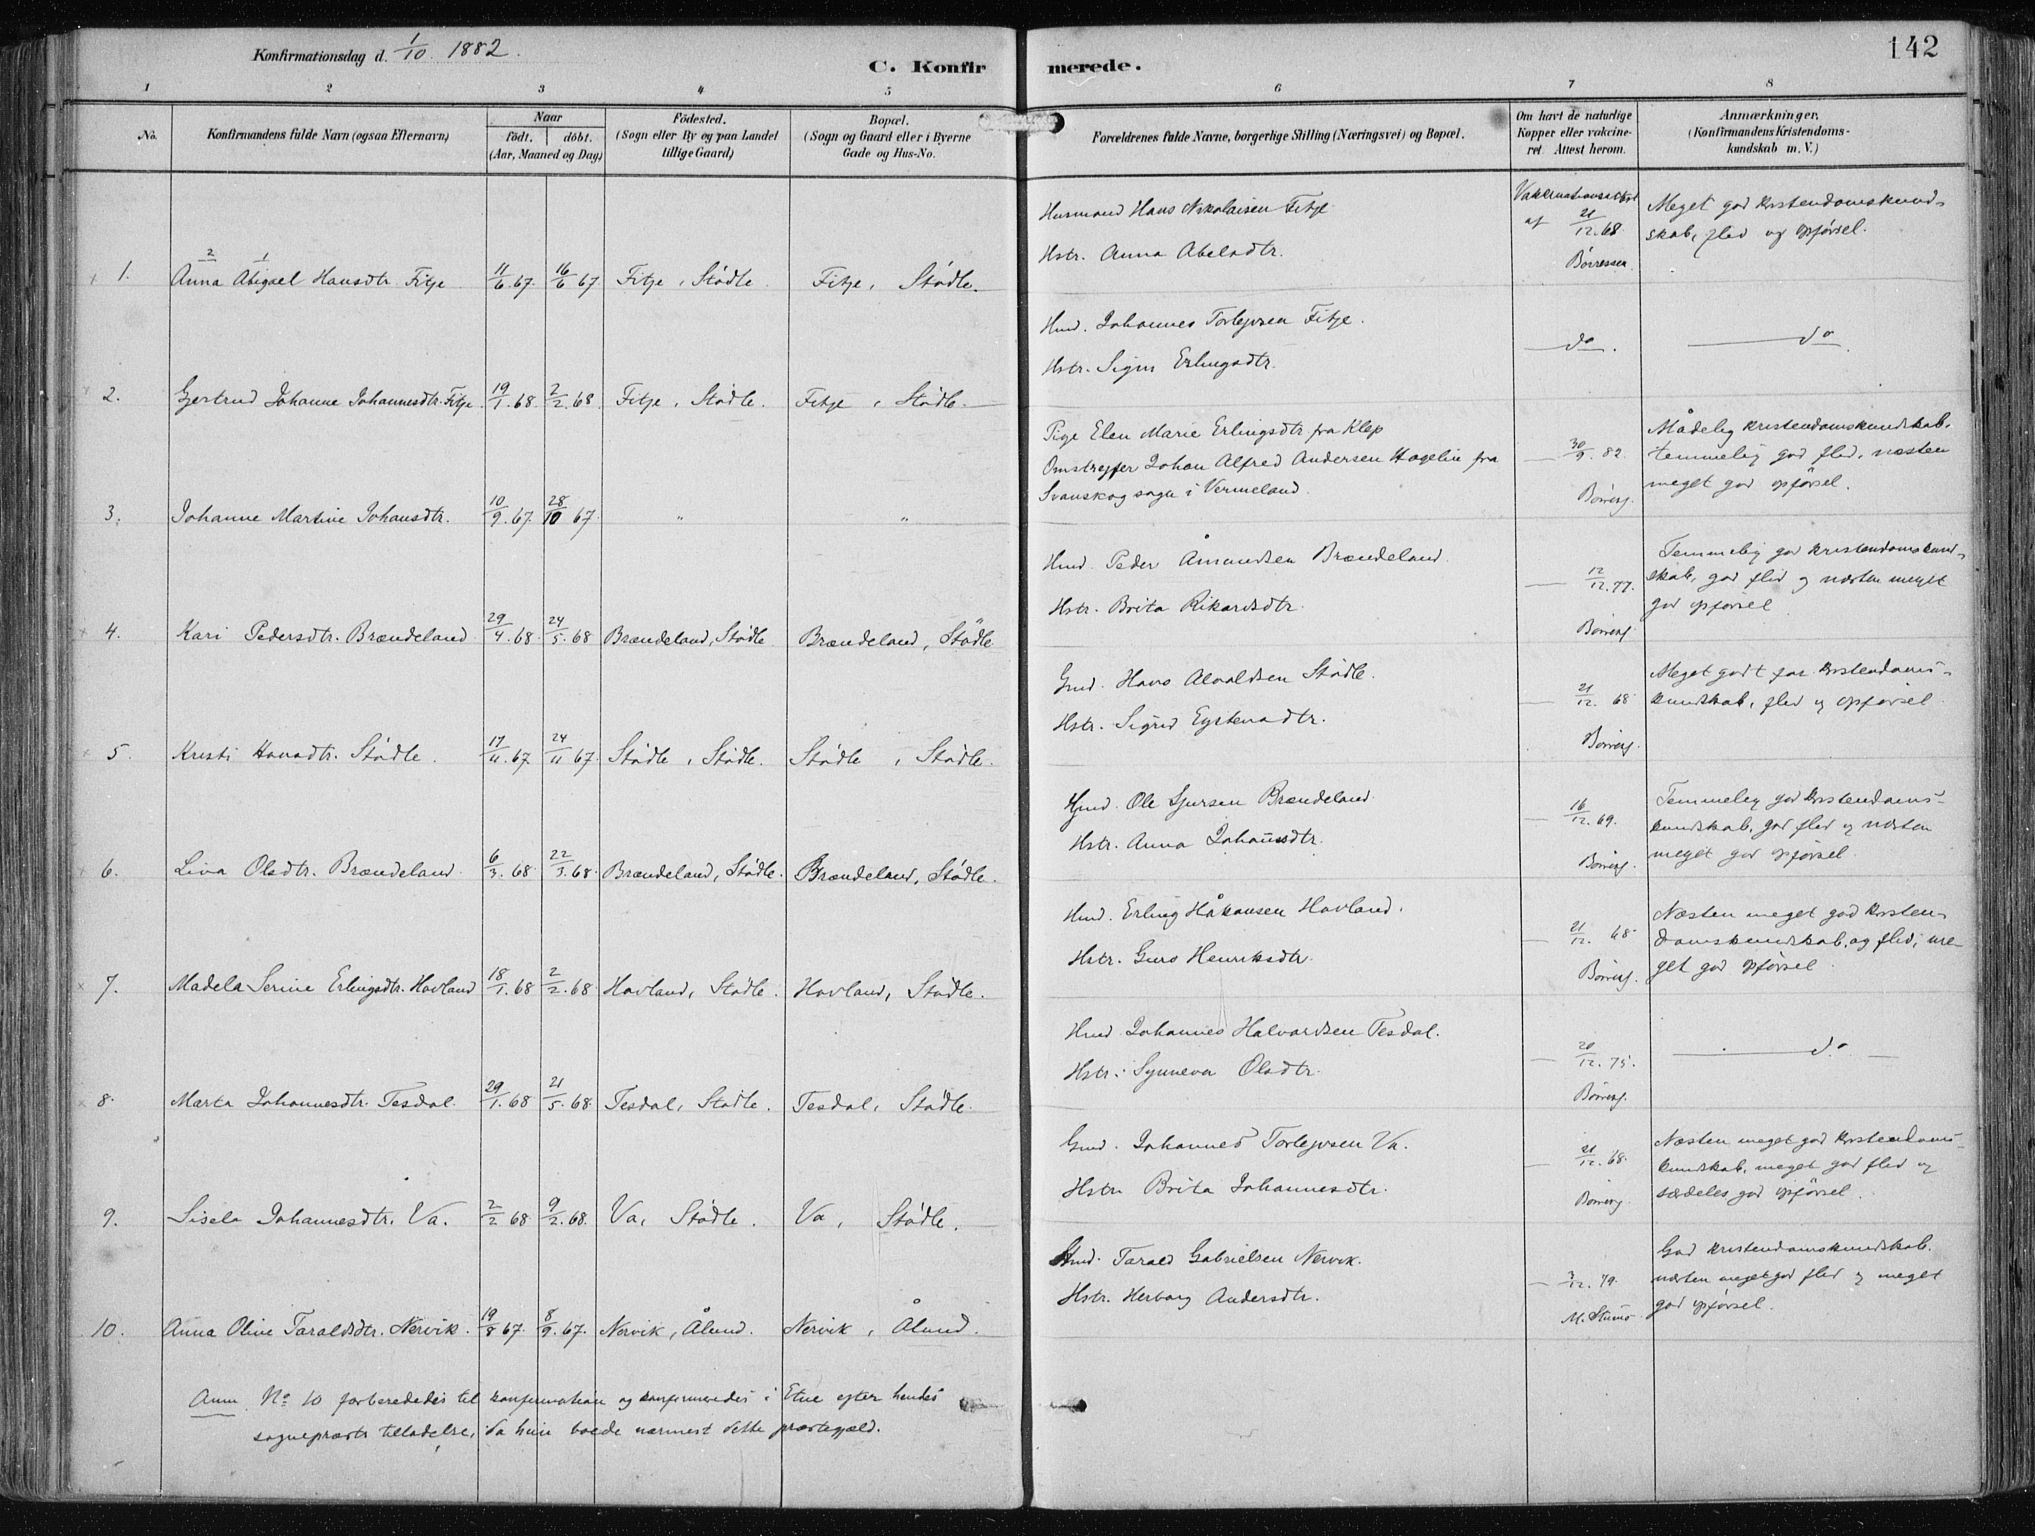 142
Konfirmationsdag d. 1/10 1882.
C. Konfirmerede.
1 2 3 4 5 6 7 8
No. Konfirmandens fulde Navn (ogsaa Efternavn) Naar födt. döbt. (Aar, Maaned og Dag) Födested. (Sogn eller By og paa Landet tillige Gaard) Bopæl. (Sogn og Gaard eller i Byerne Gade og Hus-No. Forældrenes fulde Navne, borgerlige Stilling (Næringsvei) og Bopæl. Om havt de naturlige Kopper eller vakcineret Attest herom. Anmærkninger. (Konfirmandens Kristendomskundskab m. V.)
1. Anna Abigael Hansdtr. Fitje 11/6 67. 16/6 67. Fitje, Stödle. Fitje, Stödle.
Husmand Hans Nikolaisen Fitje
Hstr. Anna Abelsdtr.
Vakcinationsattest af 21/12 68 Börressen
Meget god kristendomskundskab, flid og opförsel.
2. Gjertrud Johanne Johannesdtr. Fitje. 19/1 68. 2/2 68. Fitje, Stödle. Fitje, Stödle.
Hmd. Johannes Torlejvsen Fitje.
Hstr. Signi Erlingsdtr.
do. do.
3. Johanne Martine Johansdtr. 10/9 67. 28/10 67. " "
Pige Elen Marie Erlingsdtr fra Klep
Omstrejfer Johan Alfred Andersen Hagelin fra
Svanskog sogn i Vermeland.
30/9 82. Börresg.
Mådelig kristendomskundskab,
temmelig god flid, næsten
meget god opförsel.
4. Kari Pedersdtr. Brændeland 29/4 68. 24/5 68 Brændeland, Stödle Brændeland, Stödle
Hmd. Peder Åmundsen Brændeland.
Hstr. Brita Rikardsdtr.
12/12. 77. Börresg.
Temmelig god kristendomskundskab, god flid og næsten meget
god opförsel
5. Kristi Hansdtr. Stödle. 17/11 67. 24/11 67. Stödle, Stödle. Stödle, Stödle.
Gmd. Hans Alvaldsen Stödle.
Hstr. Sigrid Eystensdtr.
21/12. 68 Börresg.
Meget godt for kristendomskundskab, flid og opförsel
6. Liva Olsdtr. Brændeland. 6/3 68 22/3 68 Brændeland, Stödle. Brændeland, Stödle.
Hmd. Ole Sjursen Brændeland
Hstr. Anna Johannesdtr.
16/12. 69. Börresg.
Temmelig god kristendomskundskab, god flid og næsten
meget god opförsel
7. Madela Serine Erlingsdtr. Hovland 18/1 68 2/2 68 Hovland, Stödle. Hovland, Stödle.
Hmd. Erling Håkonsen Hovland.
Hstr. Guro Henriksdtr.
21/12. 68 Börresg.
Næsten meget god kristendomskundskab og flid, meget god opförsel
8. Marta Johannesdtr. Tesdal. 29/1 68 21/5 68 Tesdal, Stödle. Tesdal, Stödle.
Hmd. Johannes Halvardsen Tesdal.
Hstr. Synneva Olsdtr.
20/12. 75. Börresg.
do
9. Sisela Johannesdtr. Va. 2/2 68 9/2 68. Va, Stödle. Va, Stödle.
Gmd. Johannes Torlejvsen Va.
Hstr. Brita Johannesdtr.
21/12. 68. Börresg.
Næsten meget god kristendomskundskab, meget god flid og
særdeles god opförsel.
10. Anna Olive Taraldsdtr. Nervik. 19/8 67. 8/9 67. Nervik, Ålund. Nervik, Ålund.
Smd. Tarald Gabrielsen Nervik.
Hstr. Herborg Andersdtr.
3/12. 79.
God kristendomskundskab,
næsten meget god flid og meget
god opförsel.
Anm No 10 forberededes til konfirmation og konfirmeredes i Etne efter hendes
sogneprests tilladelse, da hun boede nærmest dette prestegjæld.